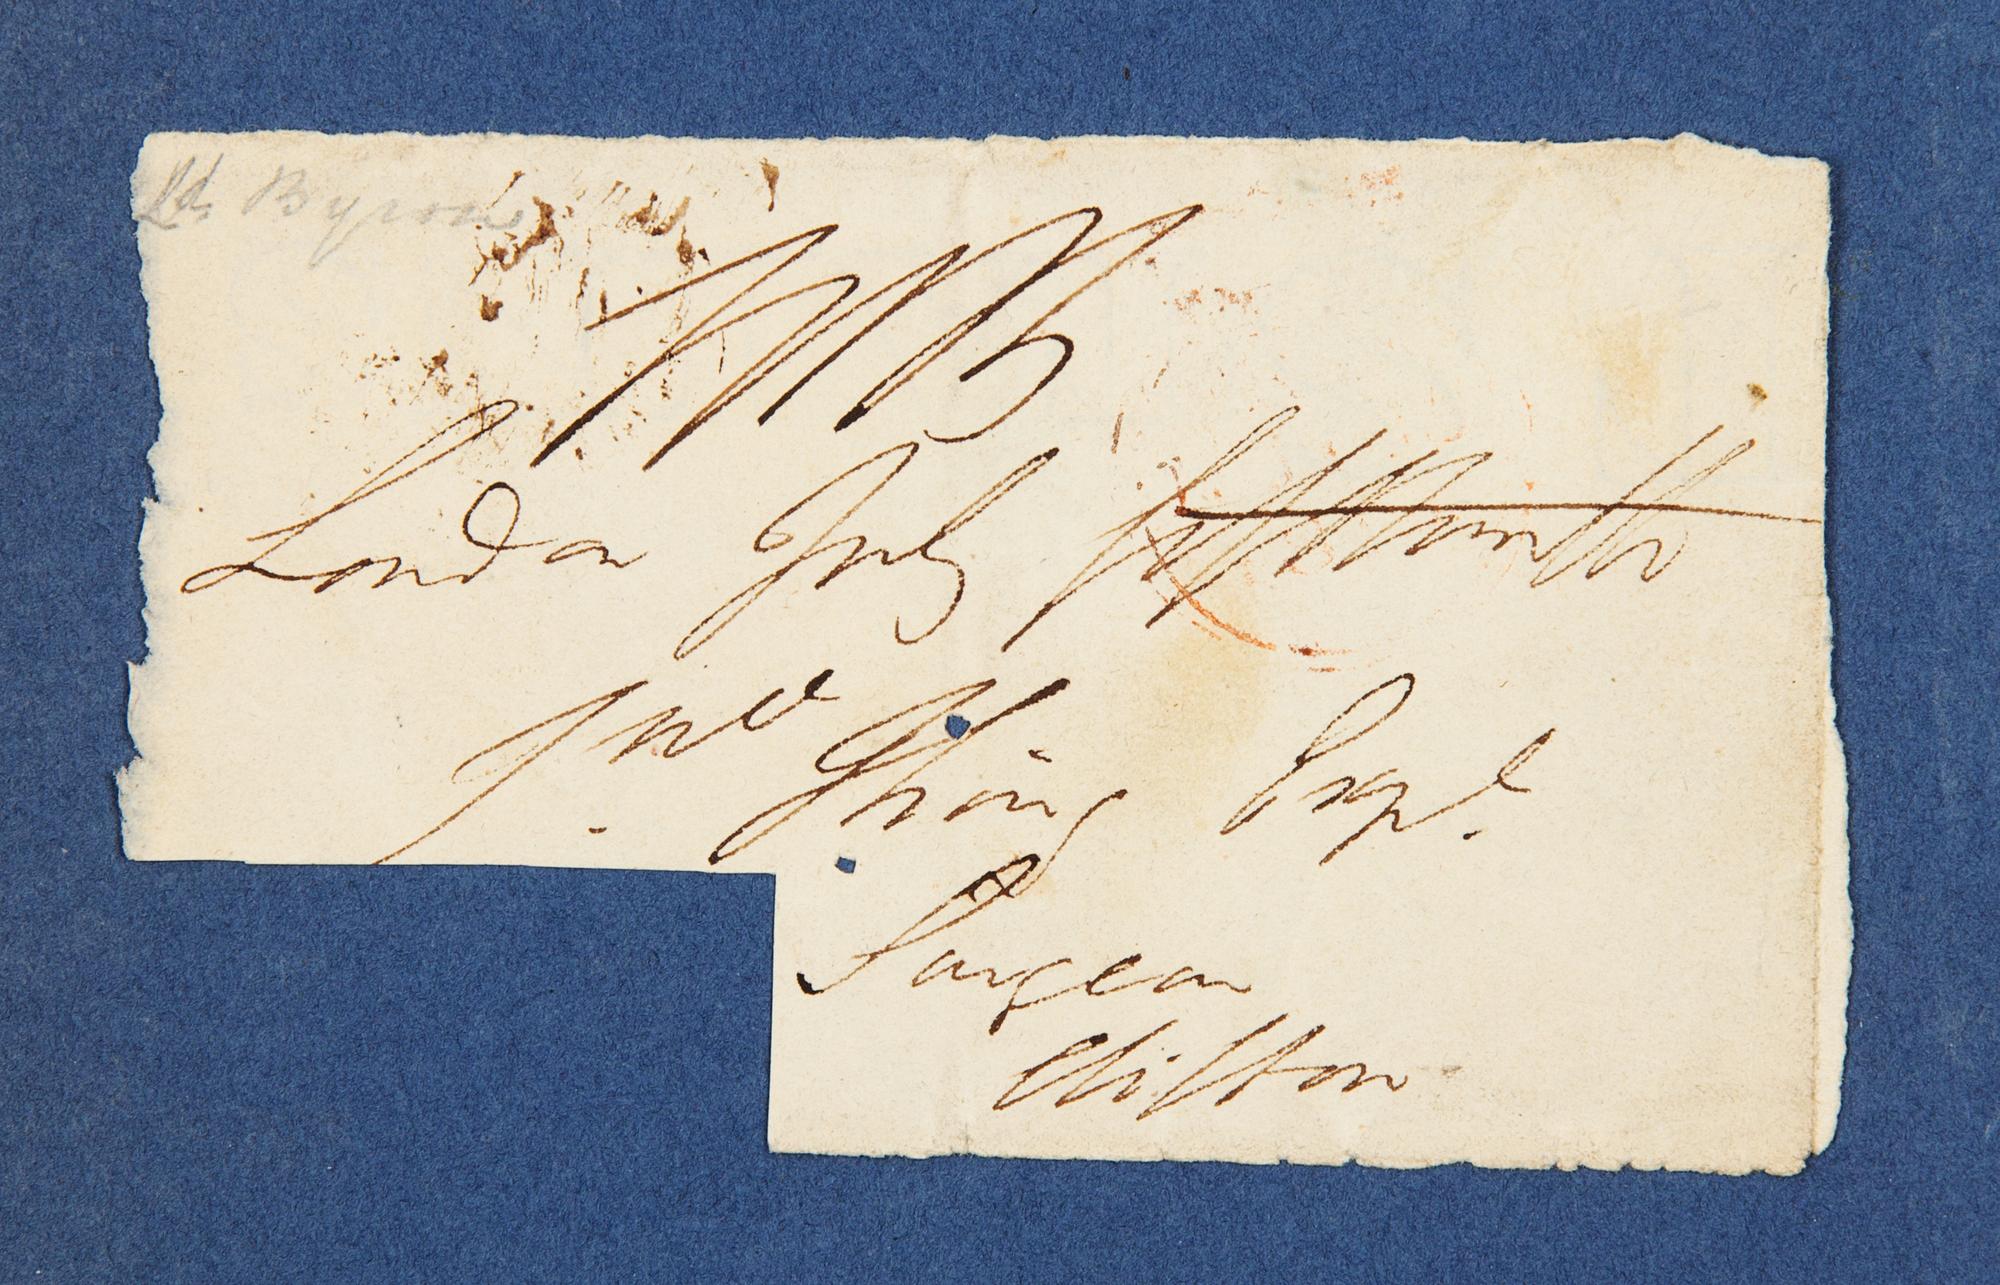 Ld. Byron
London July fifteenth
Jno. King Esqre.
Surgeon
Clifton